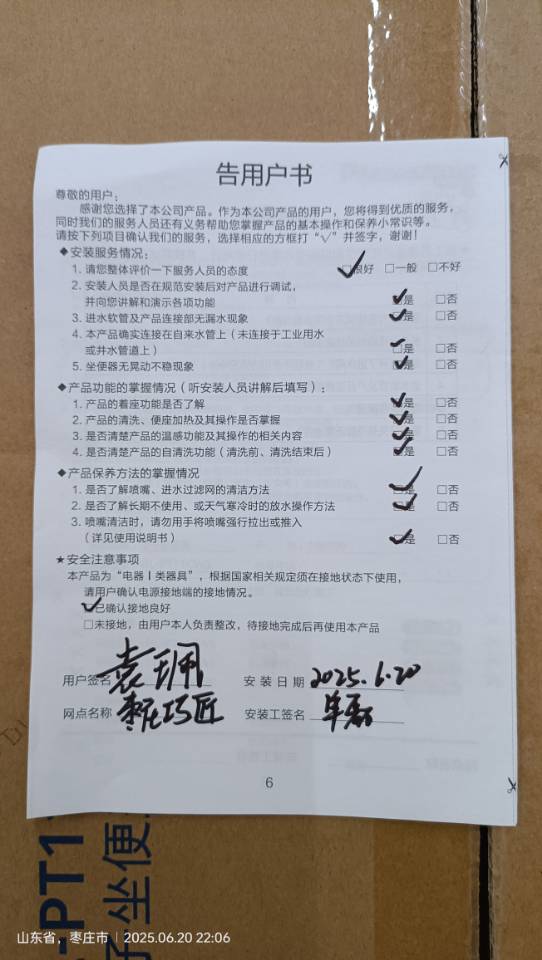 告用户书
尊敬的用户：
感谢您选择了本公司产品。作为本公司产品的用户，您将得到优质的服务，
同时我们的服务人员还有义务帮助您掌握产品的基本操作和保养小常识等。
请按下列项目确认我们的服务，选择相应的方框打“√”并签字，谢谢！
◆安装服务情况：
1. 请您整体评价一下服务人员的态度 ☑很好 □一般 □不好
2. 安装人员是否在规范安装后对产品进行调试，
并向您讲解和演示各项功能 ☑是 □否
3. 进水软管及产品连接部无漏水现象 ☑是 □否
4. 本产品确实连接在自来水管上（未连接于工业用水
或井水管道上） ☑是 □否
5. 坐便器无晃动不稳现象 ☑是 □否
◆产品功能的掌握情况（听安装人员讲解后填写）：
1. 产品的着座功能是否了解 ☑是 □否
2. 产品的清洗、便座加热及其操作是否掌握 ☑是 □否
3. 是否清楚产品的温感功能及其操作的相关内容 ☑是 □否
4. 是否清楚产品的自清洗功能（清洗前、清洗结束后） ☑是 □否
◆产品保养方法的掌握情况
1. 是否了解喷嘴、进水过滤网的清洁方法 ☑是 □否
2. 是否了解长期不使用、或天气寒冷时的放水操作方法 ☑是 □否
3. 喷嘴清洁时，请勿用手将喷嘴强行拉出或推入
（详见使用说明书） ☑是 □否
★安全注意事项
本产品为“电器Ⅰ类器具”，根据国家相关规定须在接地状态下使用，
请用户确认电源接地端的接地情况。
☑已确认接地良好
□未接地，由用户本人负责整改，待接地完成后再使用本产品
用户签名 袁 安装日期 2025.6.20
网点名称 枣庄巧匠 安装工签名
6
-PT1
子坐便
山东省，枣庄市 | 2025.06.20 22:06